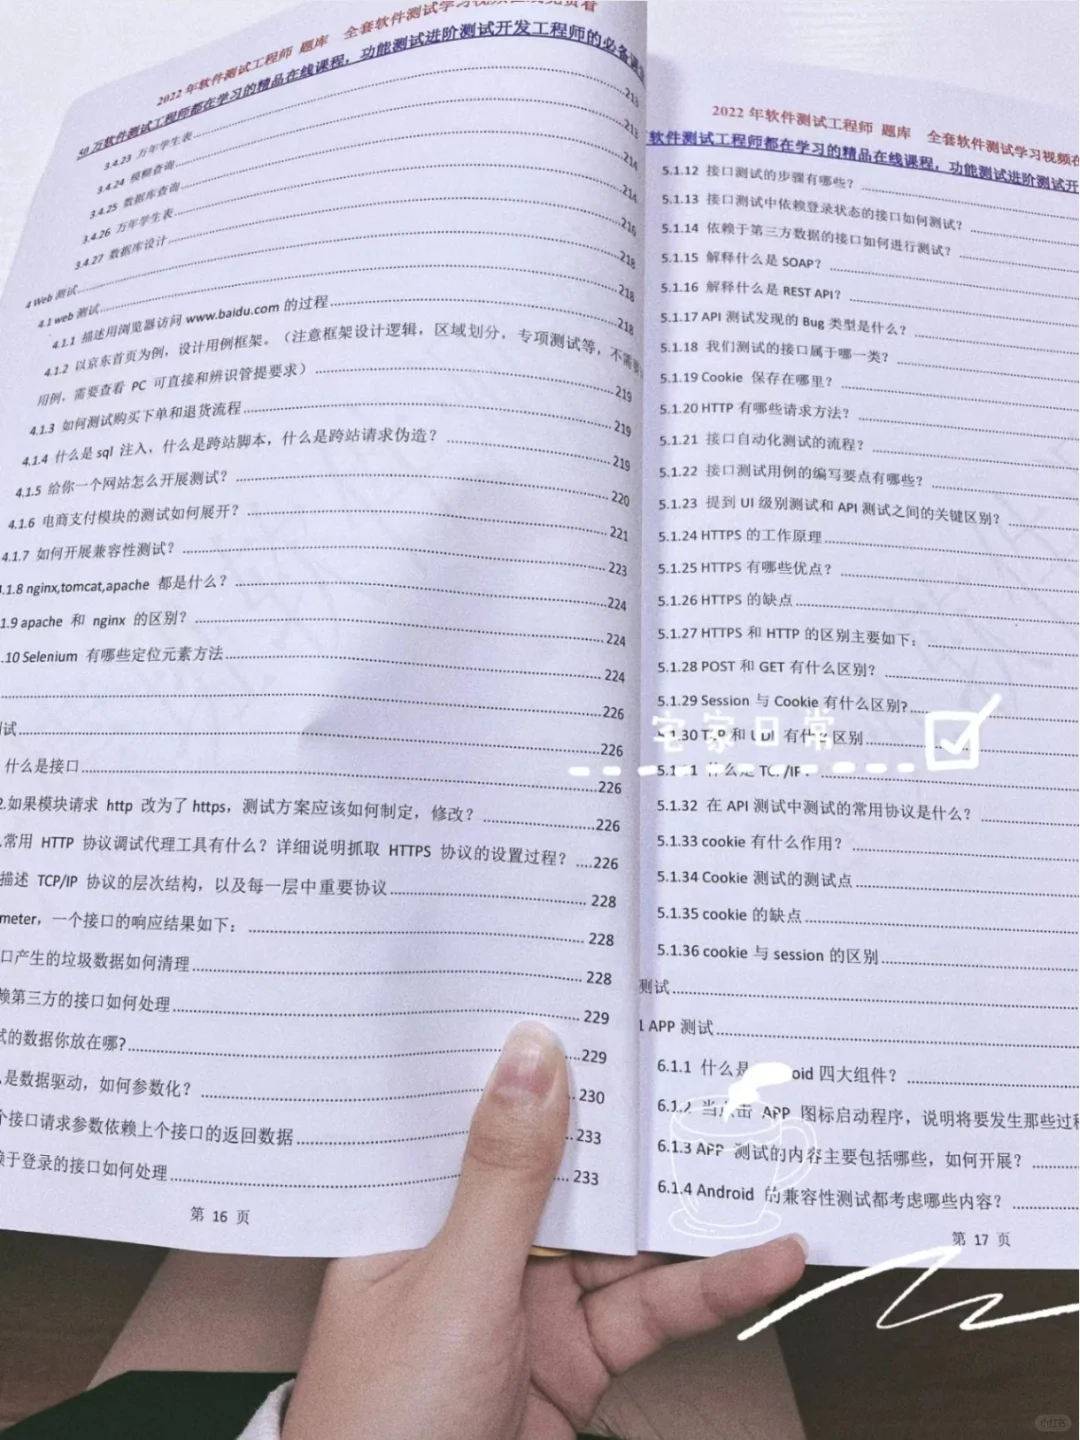 2022 年软件测试工程师 题库 全套软件测试学习视频在线免费看
50 万软件测试工程师都在学习的精品在线课程，功能测试进阶测试开发工程师的必备课
3.4.23 万年学生表 213
3.4.24 模糊查询 213
3.4.25 数据库查询 214
3.4.26 万年学生表 214
3.4.27 数据库设计 216
4 Web 测试 218
4.1 web 测试 218
4.1.1 描述用浏览器访问 www.baidu.com 的过程 218
4.1.2 以京东首页为例，设计用例框架。（注意框架设计逻辑，区域划分，专项测试等，不需要
用例，需要查看 PC 可直接和辨识管提要求） 219
4.1.3 如何测试购买下单和退货流程 219
4.1.4 什么是 sql 注入，什么是跨站脚本，什么是跨站请求伪造？ 219
4.1.5 给你一个网站怎么开展测试？ 220
4.1.6 电商支付模块的测试如何展开？ 221
4.1.7 如何开展兼容性测试？ 223
4.1.8 nginx,tomcat,apache 都是什么？ 224
.1.9 apache 和 nginx 的区别？ 224
.10 Selenium 有哪些定位元素方法 224
226
试 226
什么是接口 226
2.如果模块请求 http 改为了 https，测试方案应该如何制定，修改？ 226
.常用 HTTP 协议调试代理工具有什么？详细说明抓取 HTTPS 协议的设置过程？ 226
描述 TCP/IP 协议的层次结构，以及每一层中重要协议 228
meter，一个接口的响应结果如下： 228
口产生的垃圾数据如何清理 228
赖第三方的接口如何处理 229
试的数据你放在哪? 229
是数据驱动，如何参数化？ 230
个接口请求参数依赖上个接口的返回数据 233
赖于登录的接口如何处理 233
第 16 页
2022 年软件测试工程师 题库 全套软件测试学习视频在
软件测试工程师都在学习的精品在线课程，功能测试进阶测试开
5.1.12 接口测试的步骤有哪些？
5.1.13 接口测试中依赖登录状态的接口如何测试？
5.1.14 依赖于第三方数据的接口如何进行测试？
5.1.15 解释什么是 SOAP？
5.1.16 解释什么是 REST API？
5.1.17 API 测试发现的 Bug 类型是什么？
5.1.18 我们测试的接口属于哪一类？
5.1.19 Cookie 保存在哪里？
5.1.20 HTTP 有哪些请求方法？
5.1.21 接口自动化测试的流程？
5.1.22 接口测试用例的编写要点有哪些？
5.1.23 提到 UI 级别测试和 API 测试之间的关键区别？
5.1.24 HTTPS 的工作原理
5.1.25 HTTPS 有哪些优点？
5.1.26 HTTPS 的缺点
5.1.27 HTTPS 和 HTTP 的区别主要如下：
5.1.28 POST 和 GET 有什么区别？
5.1.29 Session 与 Cookie 有什么区别?
宅家日常
5.1.30 TCP 和 UDP 有什么区别
5.1.31 什么是 TCP/IP？
5.1.32 在 API 测试中测试的常用协议是什么？
5.1.33 cookie 有什么作用？
5.1.34 Cookie 测试的测试点
5.1.35 cookie 的缺点
5.1.36 cookie 与 session 的区别
测试
1 APP 测试
6.1.1 什么是 oid 四大组件？
6.1.2 当点击 APP 图标启动程序，说明将要发生那些过程
6.1.3 APP 测试的内容主要包括哪些，如何开展？
6.1.4 Android 的兼容性测试都考虑哪些内容？
第 17 页
小红书